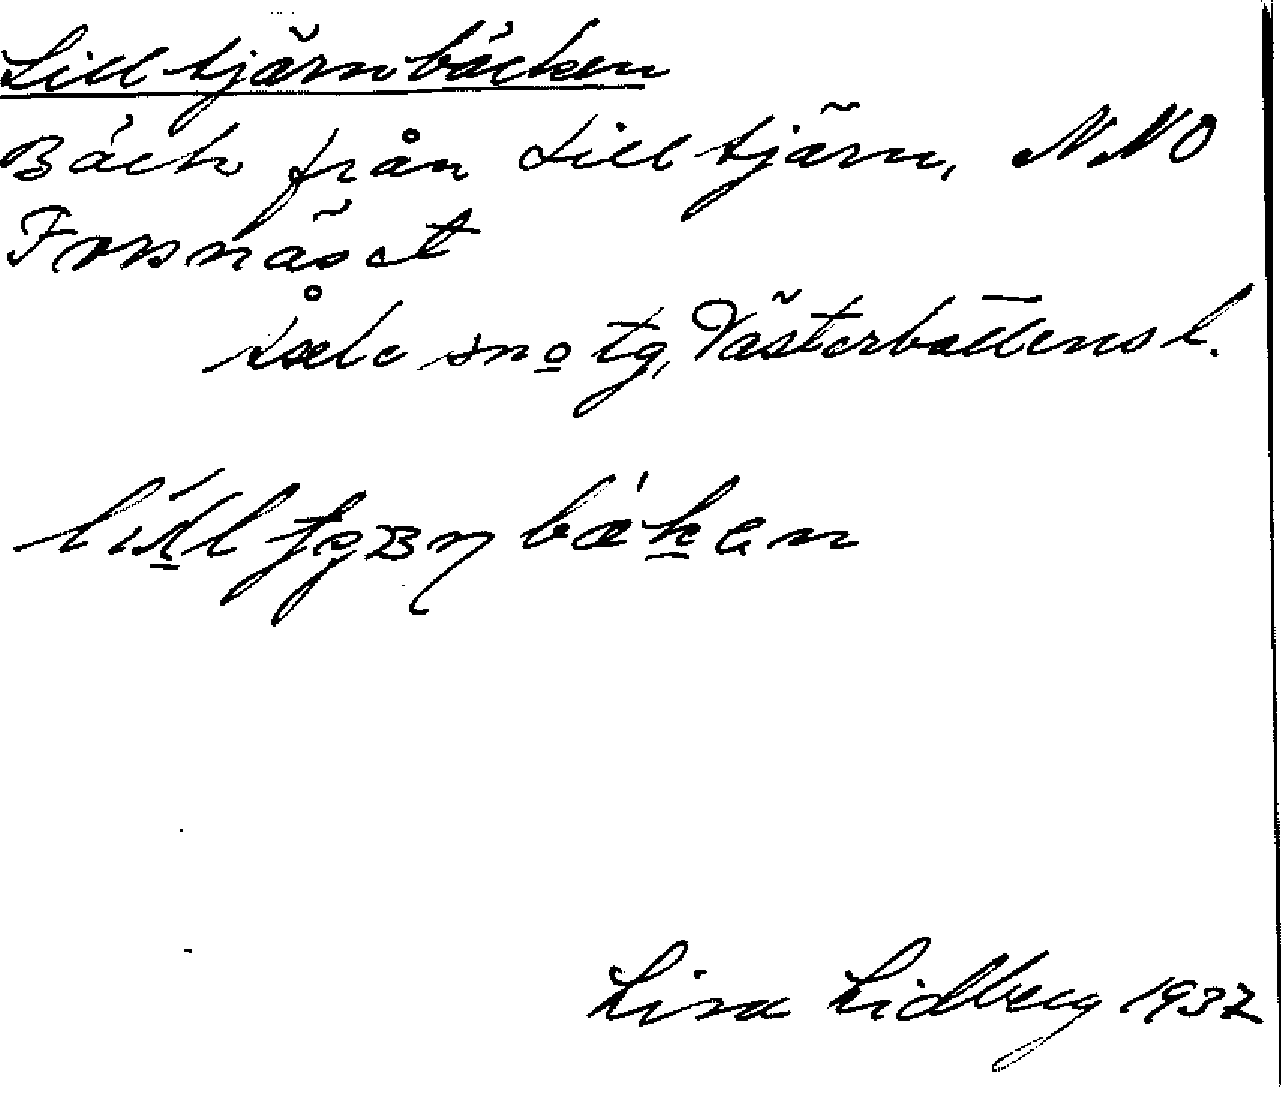 Lilltjärnbäcken
Bäck från Lilltjärn, NNO
Forsnäset
Åsele sn o tg, Västerbottens l.
bäken
Lisa Lidberg 1937